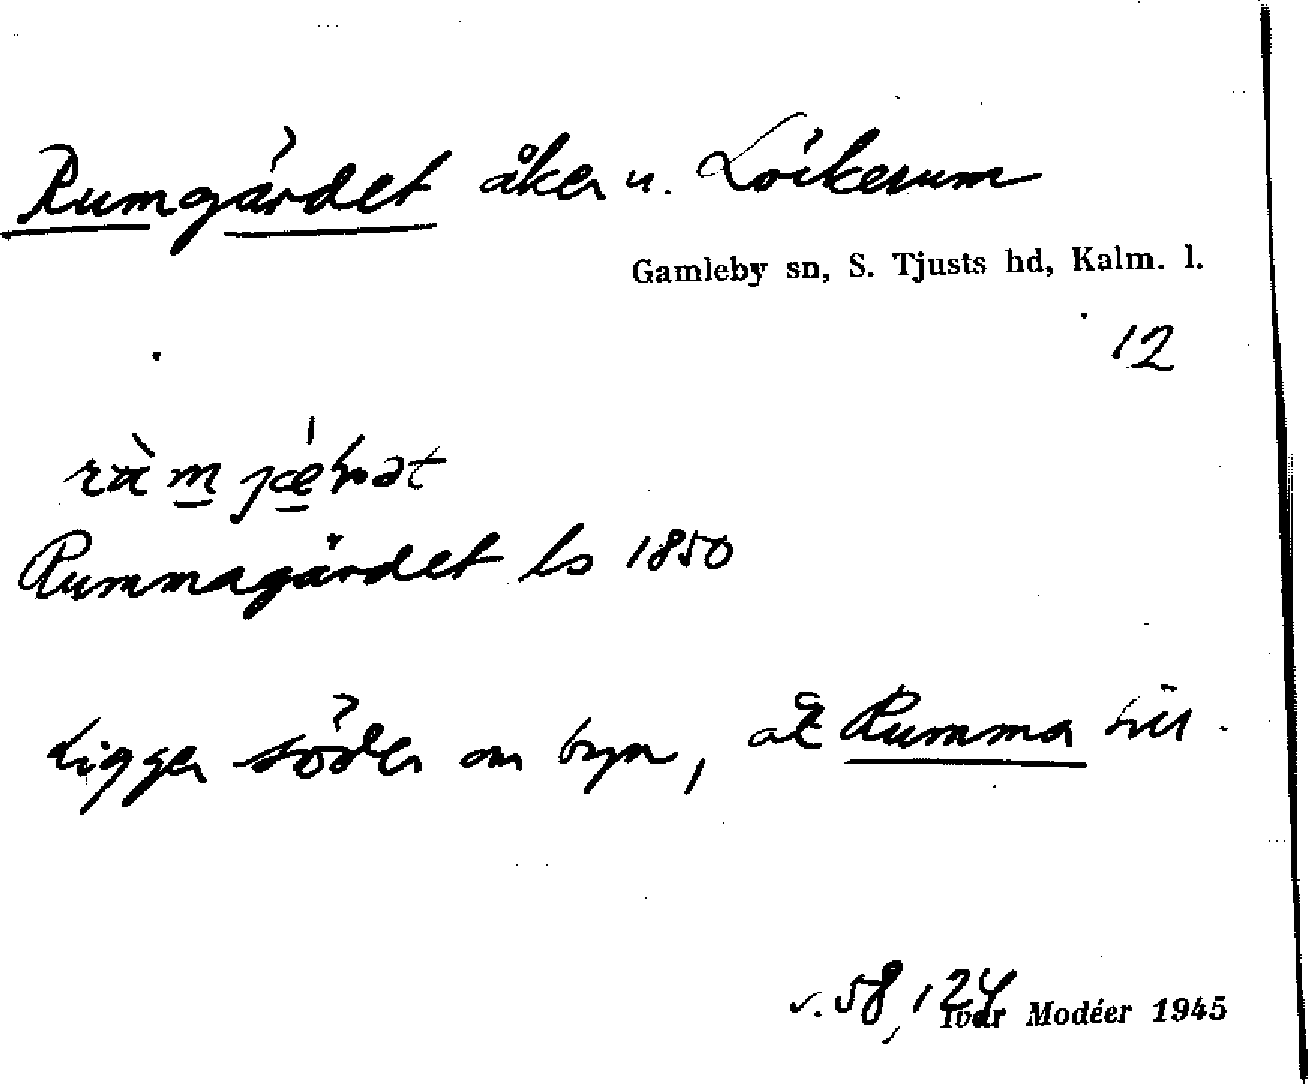 Rumgärdet åker u. Lökerum
Gamleby sn, S. Tjusts hd, Kalm. l.
12
Rummagärdet ls 1850
Ligger söder om byn, åt Rumma till.
v. 58, 124
Ivar Modéer 1945